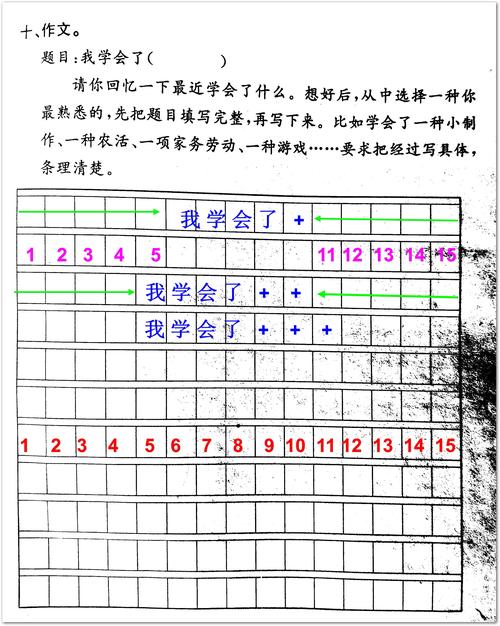 十、作文。
题目:我学会了(          )
请你回忆一下最近学会了什么。想好后,从中选择一种你
最熟悉的,先把题目填写完整,再写下来。比如学会了一种小制
作、一种农活、一项家务劳动、一种游戏……要求把经过写具体,
条理清楚。
我学会了 +
1 2 3 4 5 11 12 13 14 15
我学会了 + +
我学会了 + + +
1 2 3 4 5 6 7 8 9 10 11 12 13 14 15